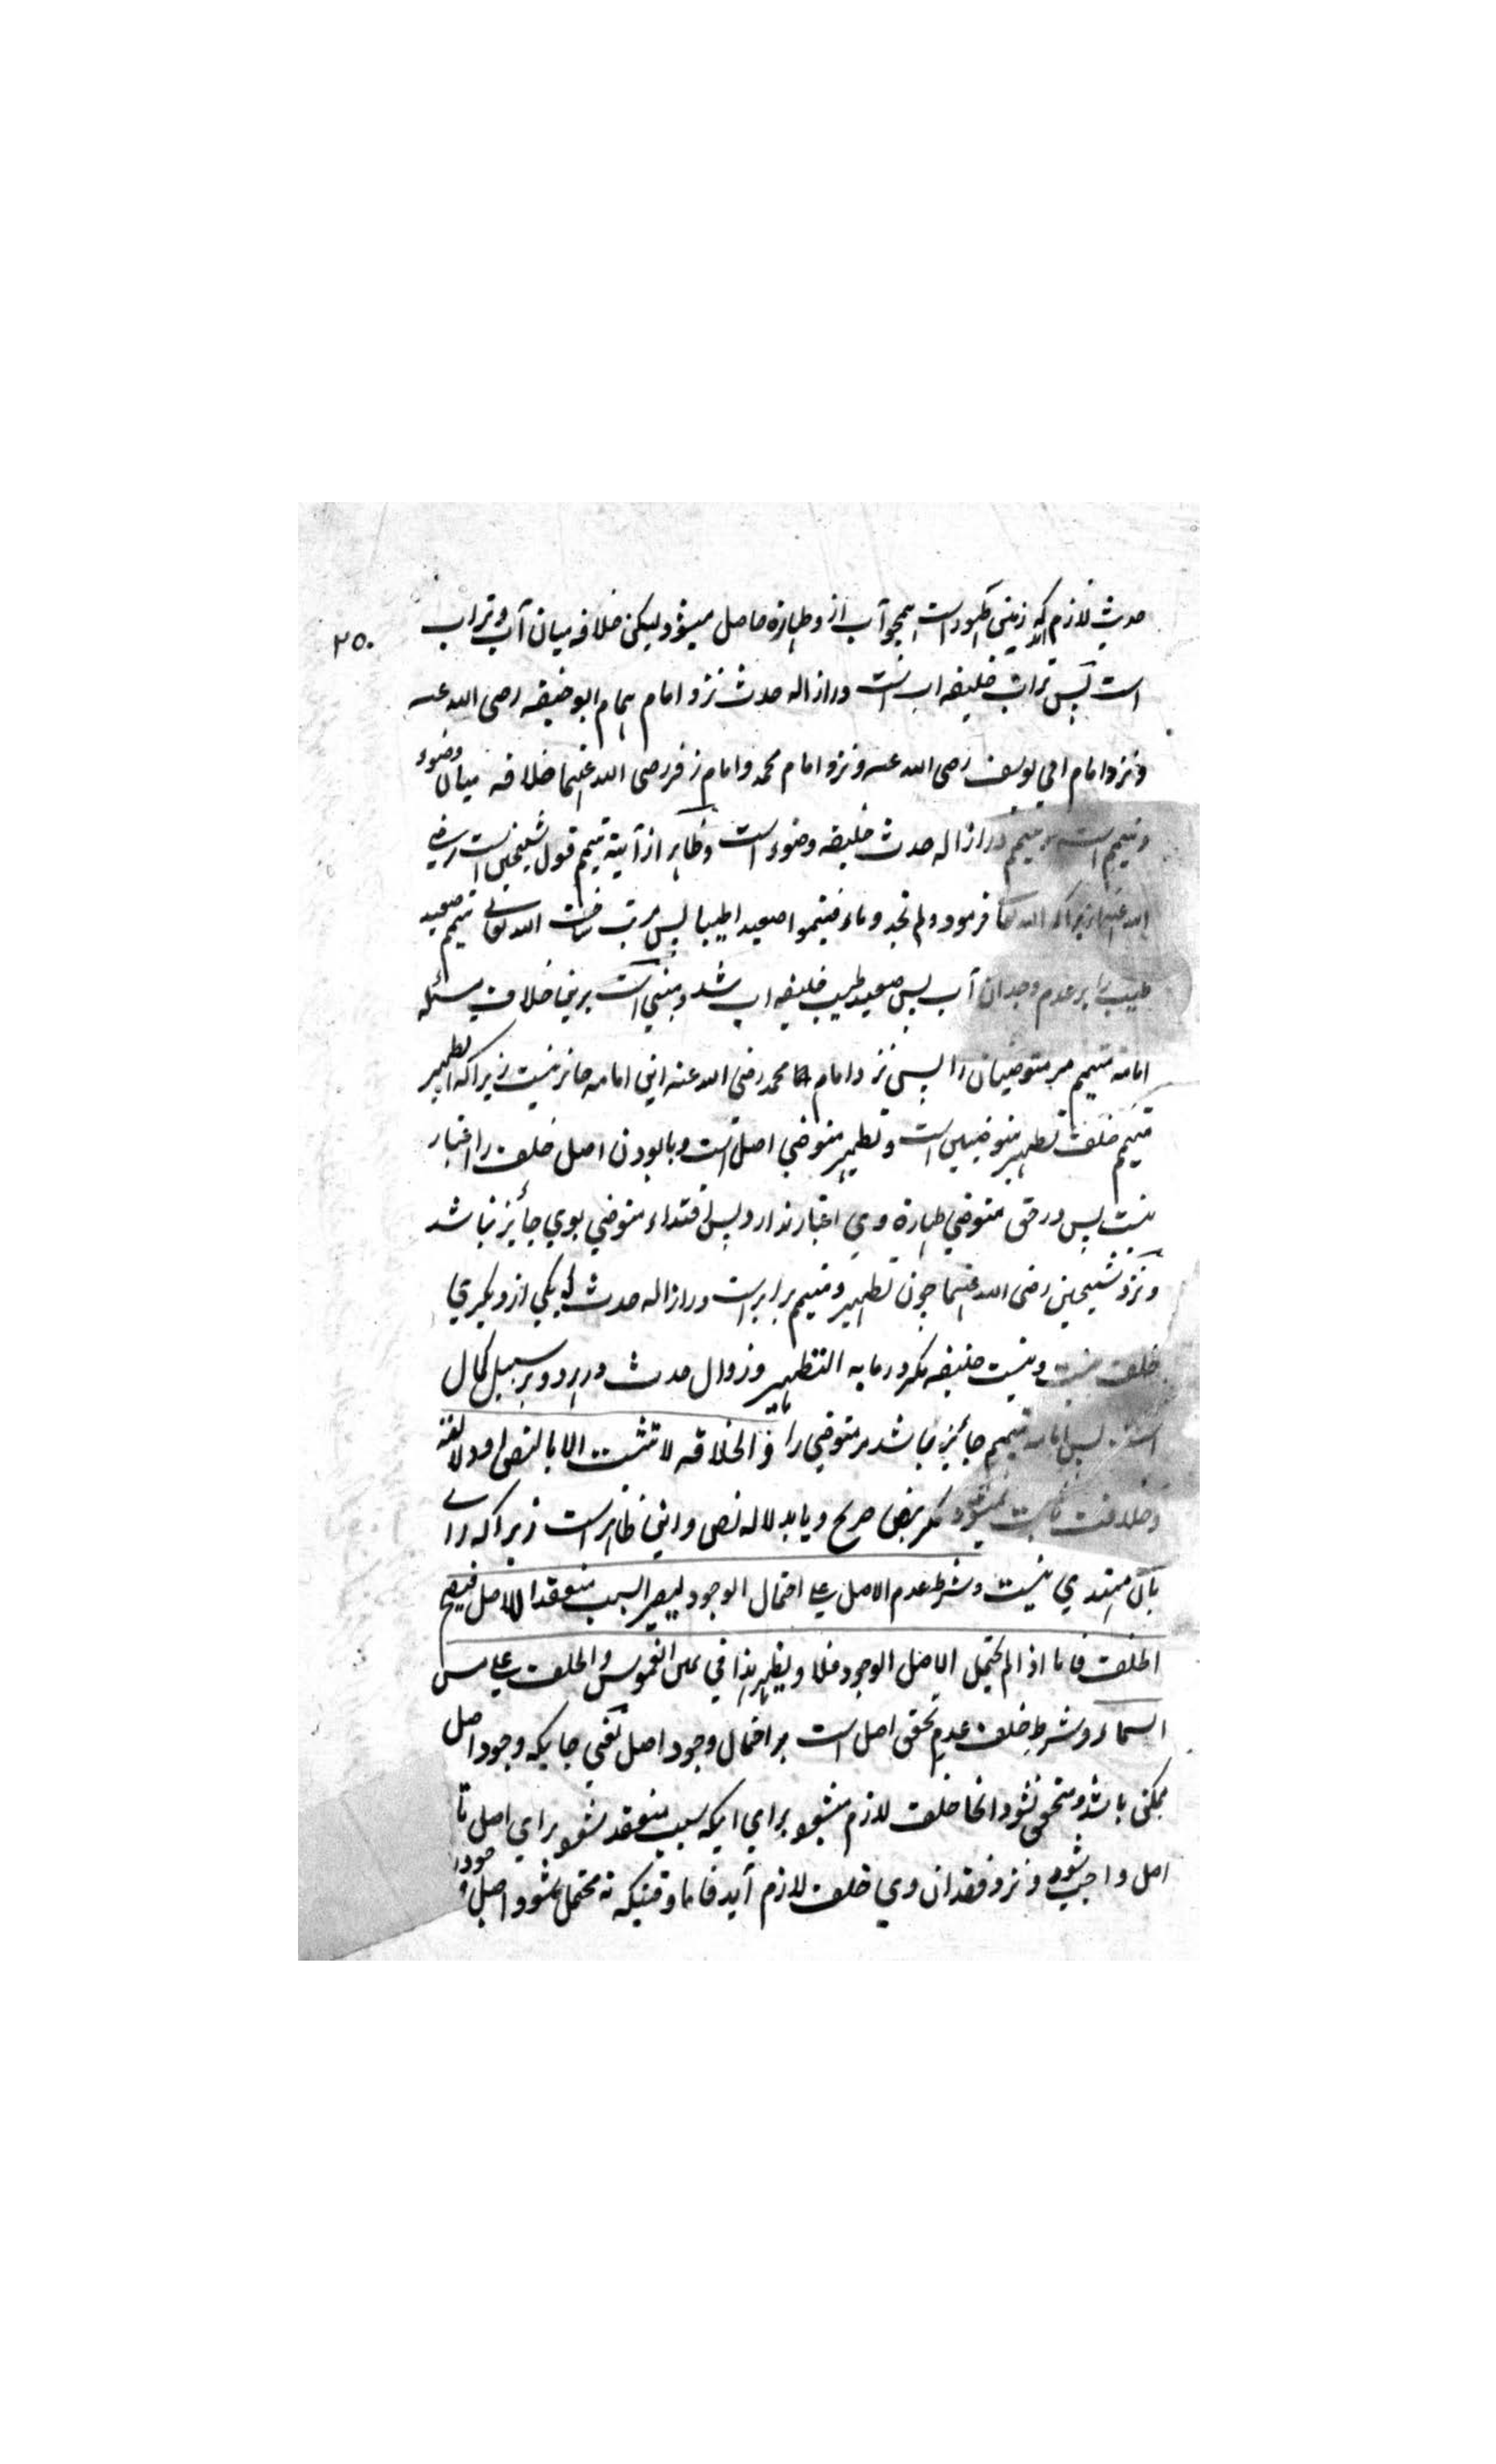 ۲۵۰
حدث لازم آید زمین طهور است همچو آب از و طهارة حاصل میشود لیکن خلافه میان آب و تراب
است پس تراب خلیفه اب است در ازاله حدث نزد امام همام ابو حنیفه رضی الله عنه
و نزد امام ابی یوسف رضی الله عنه و نزد امام محمد و امام زفر رضی الله عنهما خلافه میان وضوء
و تیمم است و تیمم در ازاله حدث خلیفه وضوء است و ظاهر از آیة تیمم قول شیخین است رضی
الله عنهما زیرا که الله تعا فرمود ولم تجدوا ماء فتیمموا صعیدا طیبا پس مرتب ساخت الله تعالی تیمم صعید
طیب را بر عدم وجدان آب پس صعید طیب خلیفه اب شد و مبنی است برین خلاف مسئله
امامة متیمم مر متوضیان را پس نزد امام محمد رضی الله عنه این امامه جائز نیست زیرا که تطهیر
متیمم خلف تطهیر متوضیین است و تطهیر متوضی اصل است و بابودن اصل خلف را اعتبار
نیست پس در حق متوضی طهارة وی اعتبار ندارد پس اقتداء متوضی بوی جائز نباشد
و نزد شیخین رضی الله عنهما چون تطهیر و متیمم برابر است در ازاله حدث که یکی از دیگری
خلف نیست و نیست خلیفه مگر در ما به التطهیر و زوال حدث در هر دو بر سبیل کمال
است پس امامة متیمم جائز باشد مر متوضی را و الخلافه لا تثبت الا بالنص او دلالته
و خلافت ثابت نمیشود مگر بنص صریح و یا بدلاله نص و این ظاهر است زیرا که رای
بآن مهتدی نیست و شرط عدم الاصل علی احتمال الوجود لیصیر السبب منعقدا للاصل فیصح
الخلف فاما اذا لم یحتمل الاصل الوجود فلا و یظهر هذا فی یمین الغموس و الحلف علی مس
السماء و شرط خلف عدم تحقق اصل است بر احتمال وجود اصل یعنی جایکه وجود اصل
ممکن باشد و متحقق نشود انجا خلف لازم میشود برای اینکه سبب منعقد شود برای اصل تا
اصل واجب شود و نزد فقدان وی خلف لازم آید فاما وقتیکه نه محتمل شود اصل وجود را